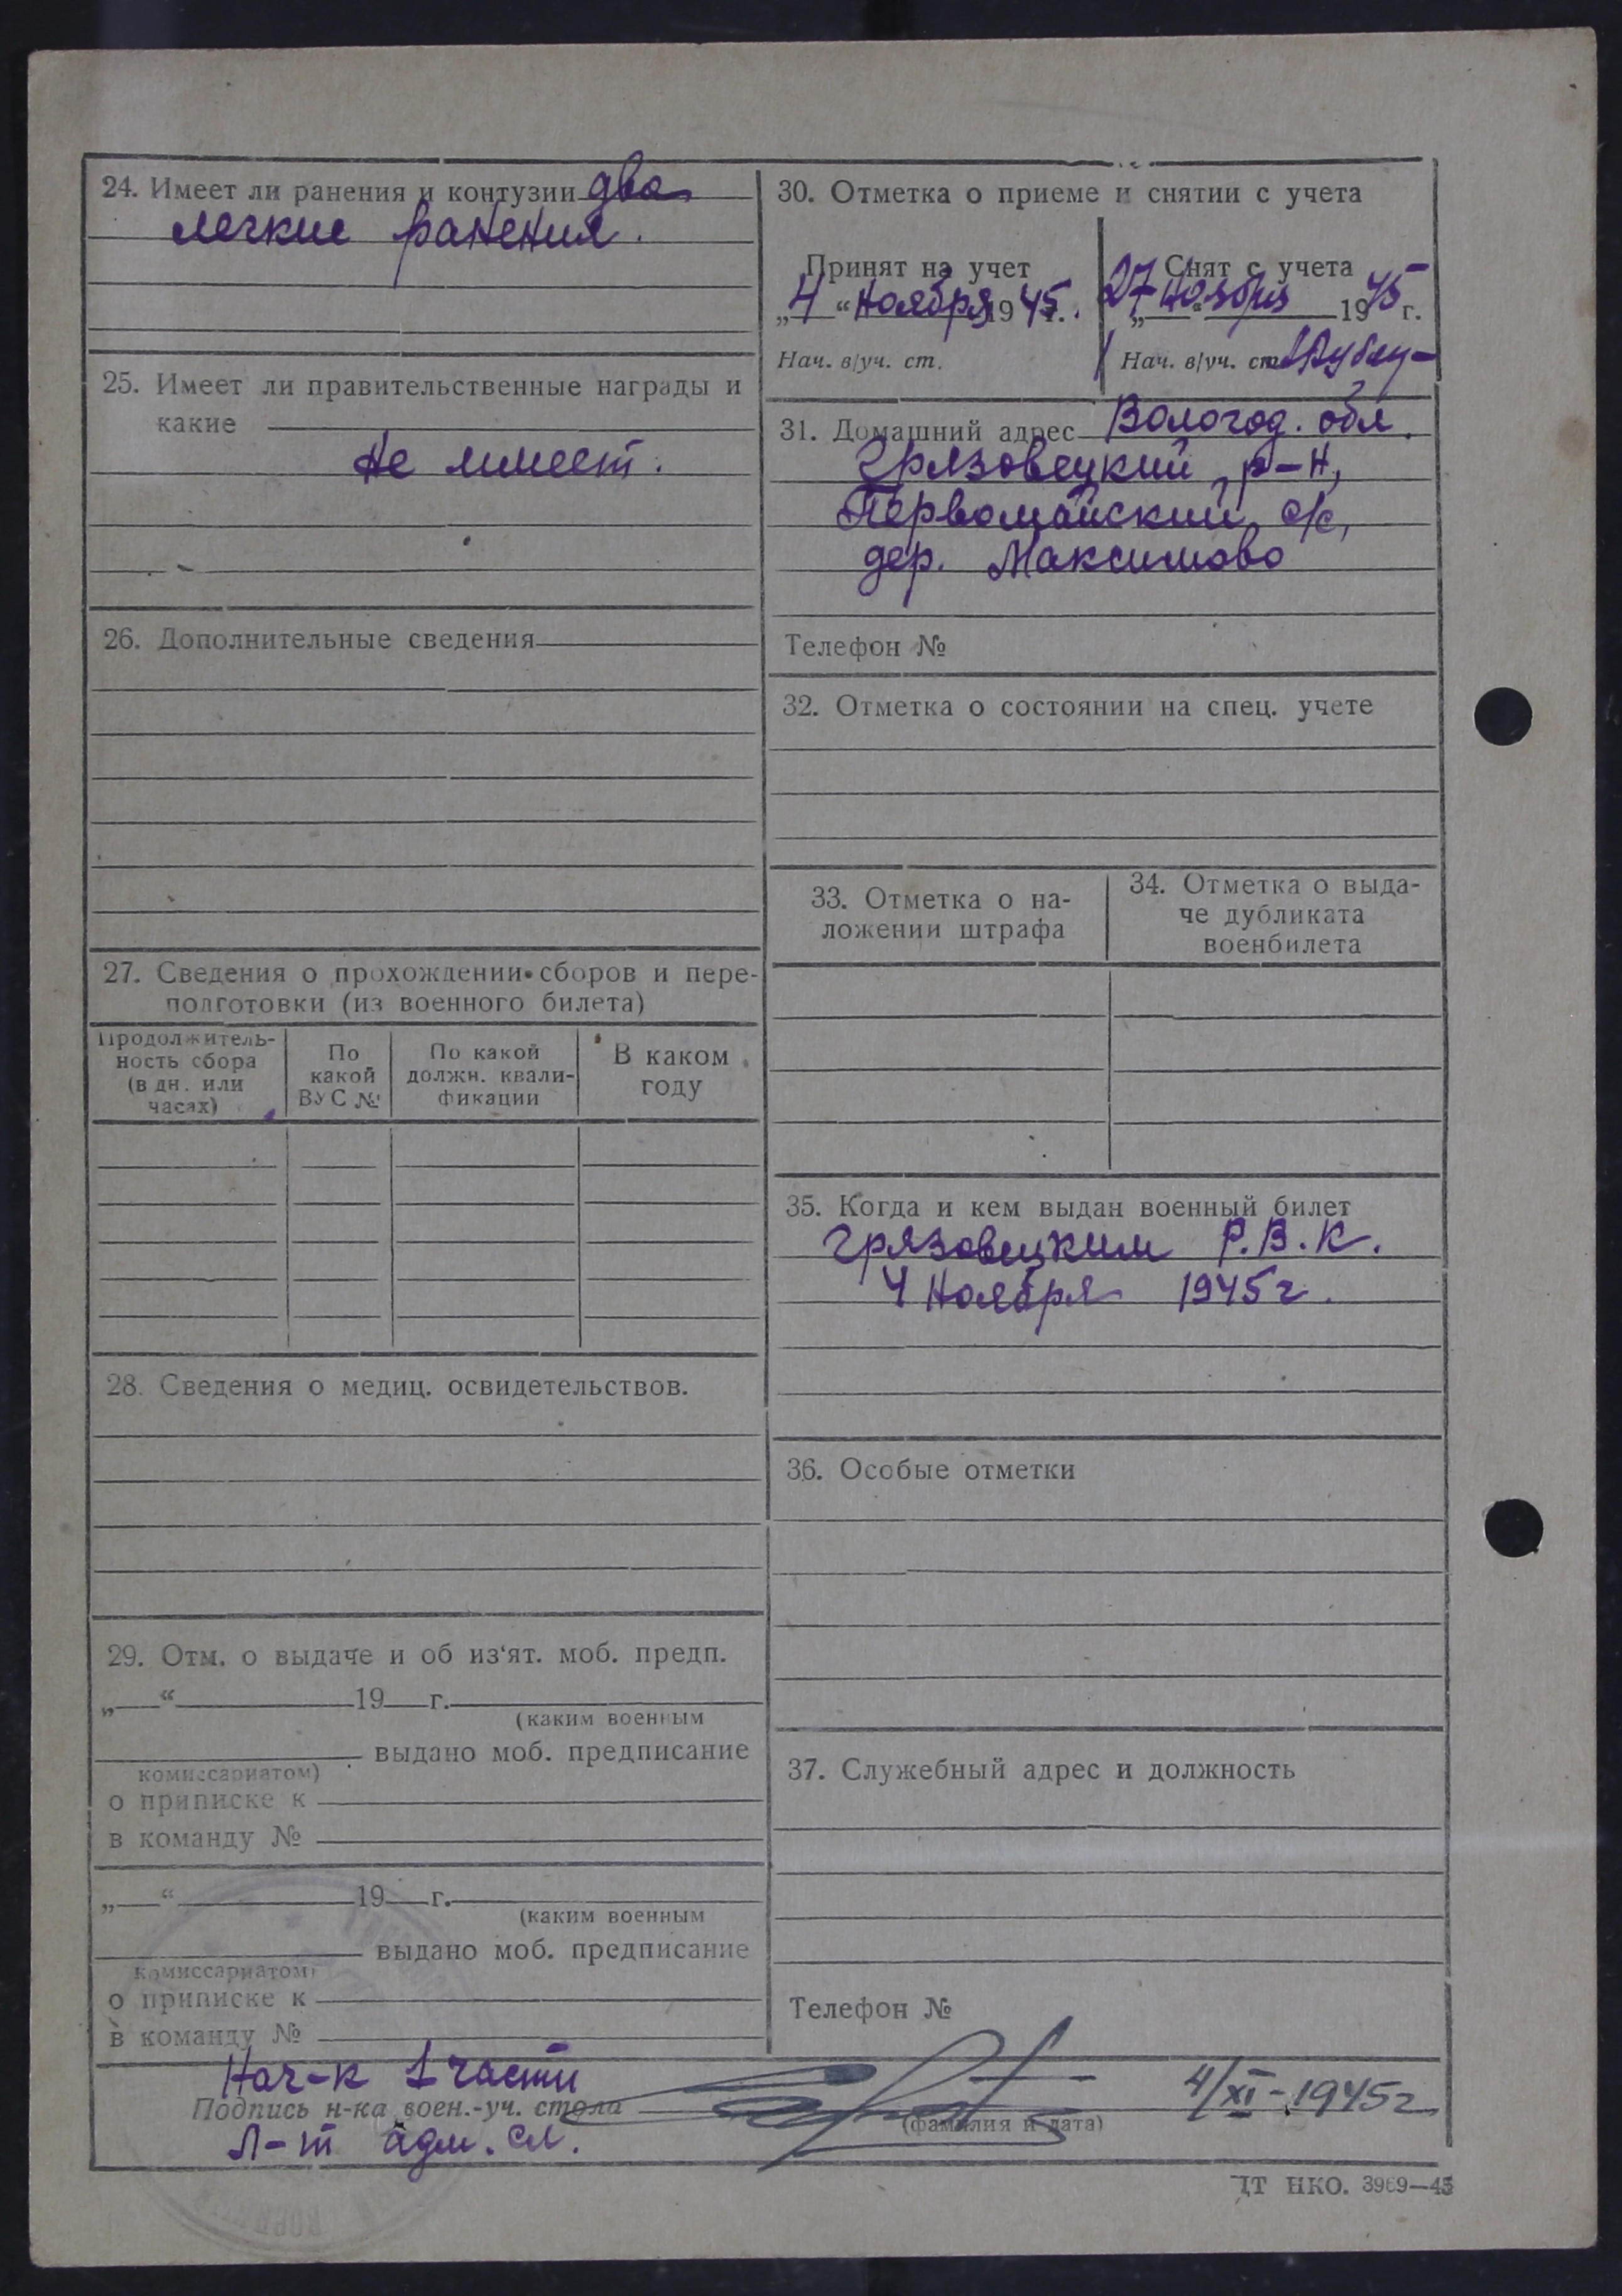 24. Имеет ли ранения и контузии два
легкие ранения.
25. Имеет ли правительственные награды и
какие
не имеет.
26. Дополнительные сведения
27. Сведения о прохождении сборов и пере-
подготовки (из военного билета)
Продолжитель-
ность сбора
(в дн. или
часах)
По
какой
ВУС №
По какой
должн. квали-
фикации
В каком
году
28. Сведения о медиц. освидетельствов.
29. Отм. о выдаче и об из‘ят. моб. предп.
„ “ 19 г.
(каким военным
выдано моб. предписание
комиссариатом)
о приписке к
в команду №
„ “ 19 г.
(каким военным
выдано моб. предписание
комиссариатом)
о приписке к
в команду №
30. Отметка о приеме и снятии с учета
Принят на учет
„4“ Ноября 1945 г.
Нач. в/уч. ст.
Снят с учета
„27“ Ноября 1945 г.
Нач. в/уч. ст.
31. Домашний адрес Вологод. обл.
Грязовецкий р-н,
Первомайский с/с,
дер. Максимово
Телефон №
32. Отметка о состоянии на спец. учете
33. Отметка о на-
ложении штрафа
34. Отметка о выда-
че дубликата
военбилета
35. Когда и кем выдан военный билет
Грязовецким Р.В.К.
4 Ноября 1945 г.
36. Особые отметки
37. Служебный адрес и должность
Телефон №
Нач-к 1 части
Подпись н-ка воен.-уч. стола
(фамилия и дата)
4/XI-1945 г
Л-т адм. сл.
ЦТ НКО. 3969—45